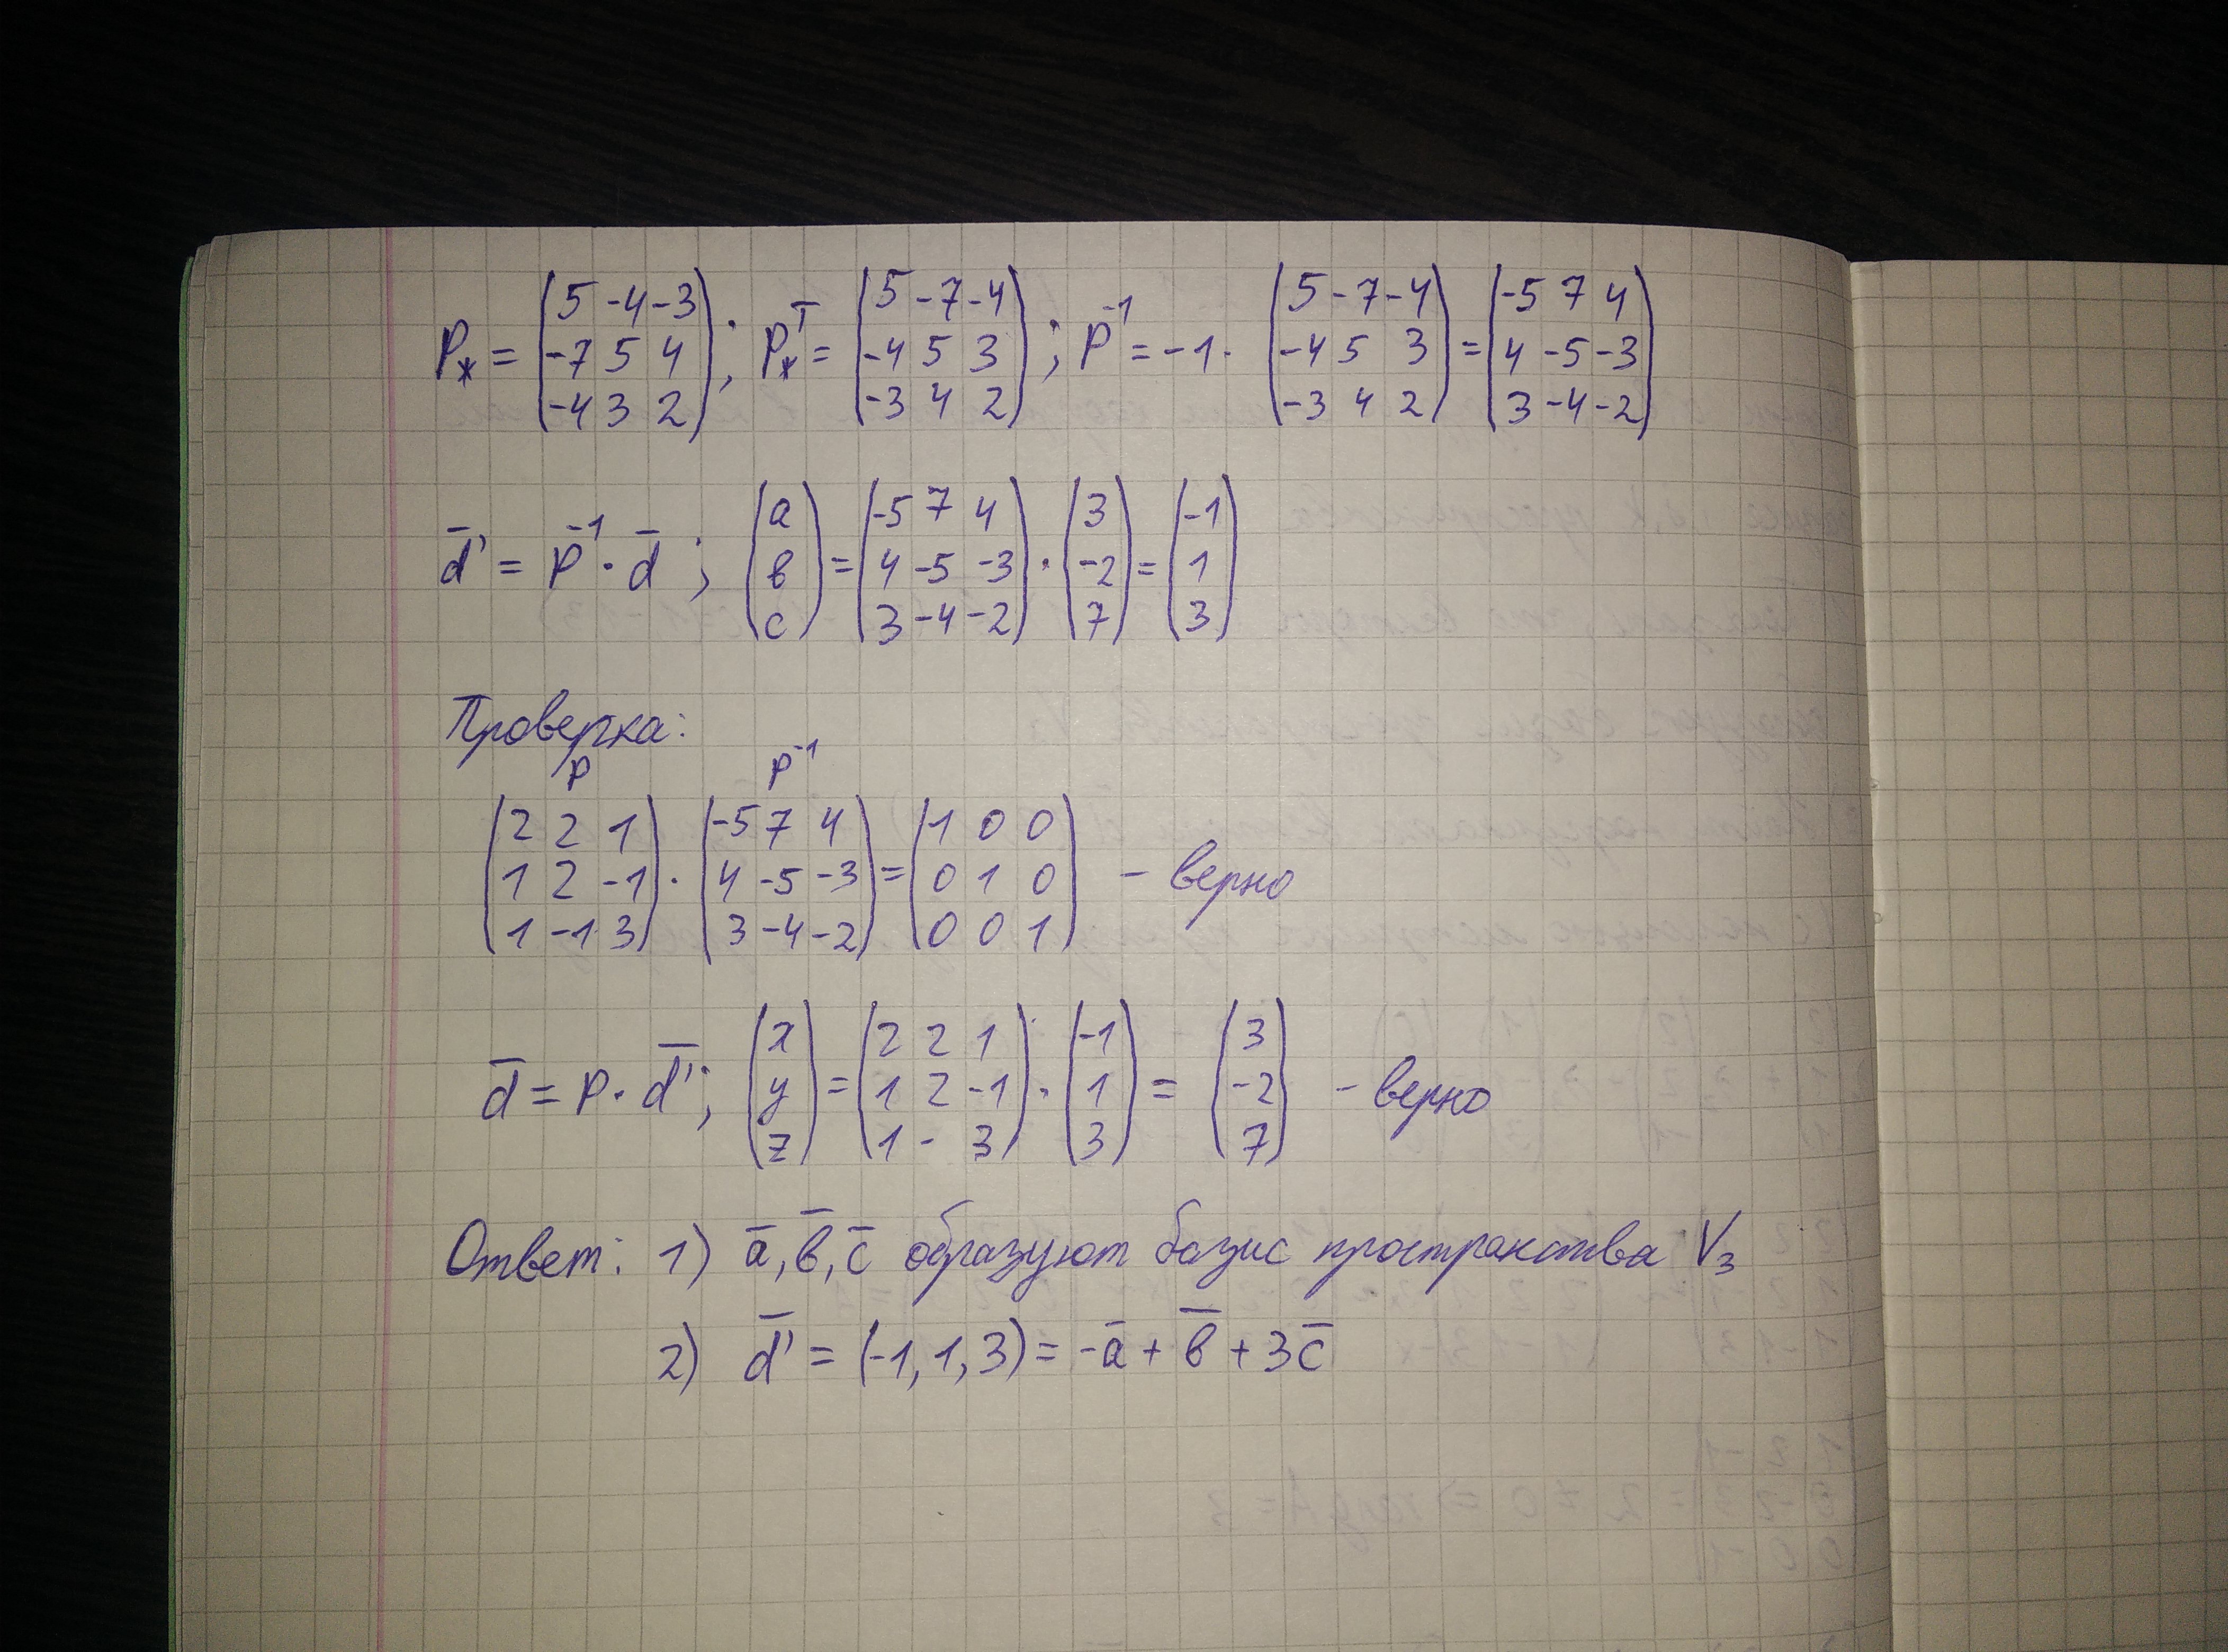 P* = (5 -4 -3; -7 5 4; -4 3 2); P*ᵀ = (5 -7 -4; -4 5 3; -3 4 2); P⁻¹ = -1 · (5 -7 -4; -4 5 3; -3 4 2) = (-5 7 4; 4 -5 -3; 3 -4 -2)
d̄' = P⁻¹ · d̄ ; (a; в; c) = (-5 7 4; 4 -5 -3; 3 -4 -2) · (3; -2; 7) = (-1; 1; 3)
Проверка:
P P⁻¹
(2 2 1; 1 2 -1; 1 -1 3) · (-5 7 4; 4 -5 -3; 3 -4 -2) = (1 0 0; 0 1 0; 0 0 1) - верно
d̄ = P · d̄'; (x; y; z) = (2 2 1; 1 2 -1; 1 - 3) · (-1; 1; 3) = (3; -2; 7) - верно
Ответ: 1) ā, в̄, c̄ образуют базис пространства V₃
2) d̄' = (-1, 1, 3) = -ā + в̄ + 3c̄